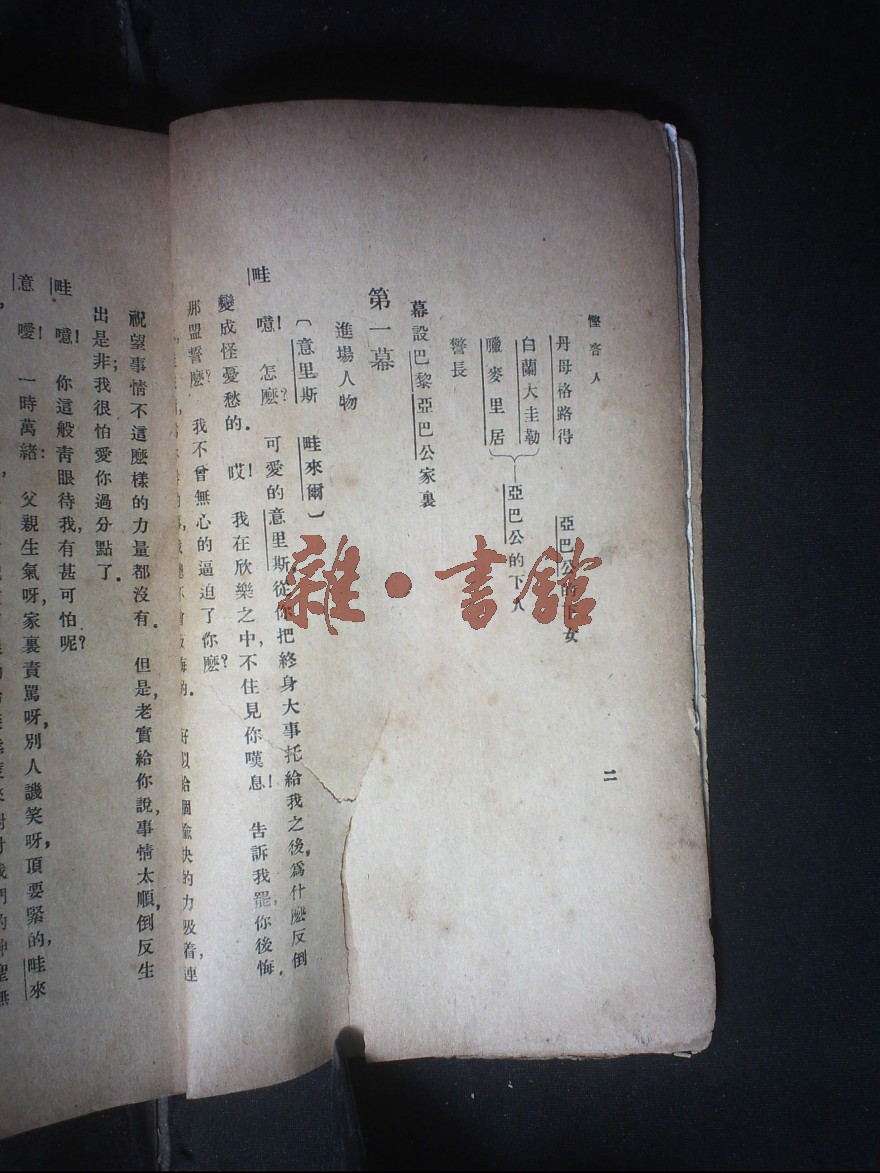 慳吝人
二
丹母格路得 亞巴公的下女
白蘭大圭勒
臘麥里居
亞巴公的下人
警長
幕設巴黎亞巴公家裏
第一幕
進場人物
〔意里斯 哇來爾〕
哇 噫！怎麽？可愛的意里斯從你把終身大事托給我之後，爲什麽反倒
變成怪憂愁的。哎！我在欣樂之中，不住見你嘆息！告訴我罷，你後悔
那盟誓麽？我不曾無心的逼迫了你麽？
好似給個愉快的力吸着，連
祝望事情不這麽樣的力量都沒有。但是，老實給你說，事情太順，倒反生
出是非；我很怕愛你過分點了。
哇 噫！你這般靑眼待我，有甚可怕呢？
意 噯！一時萬緒：父親生氣呀，家裏責罵呀，別人譏笑呀，頂要緊的，哇來
雜·書館